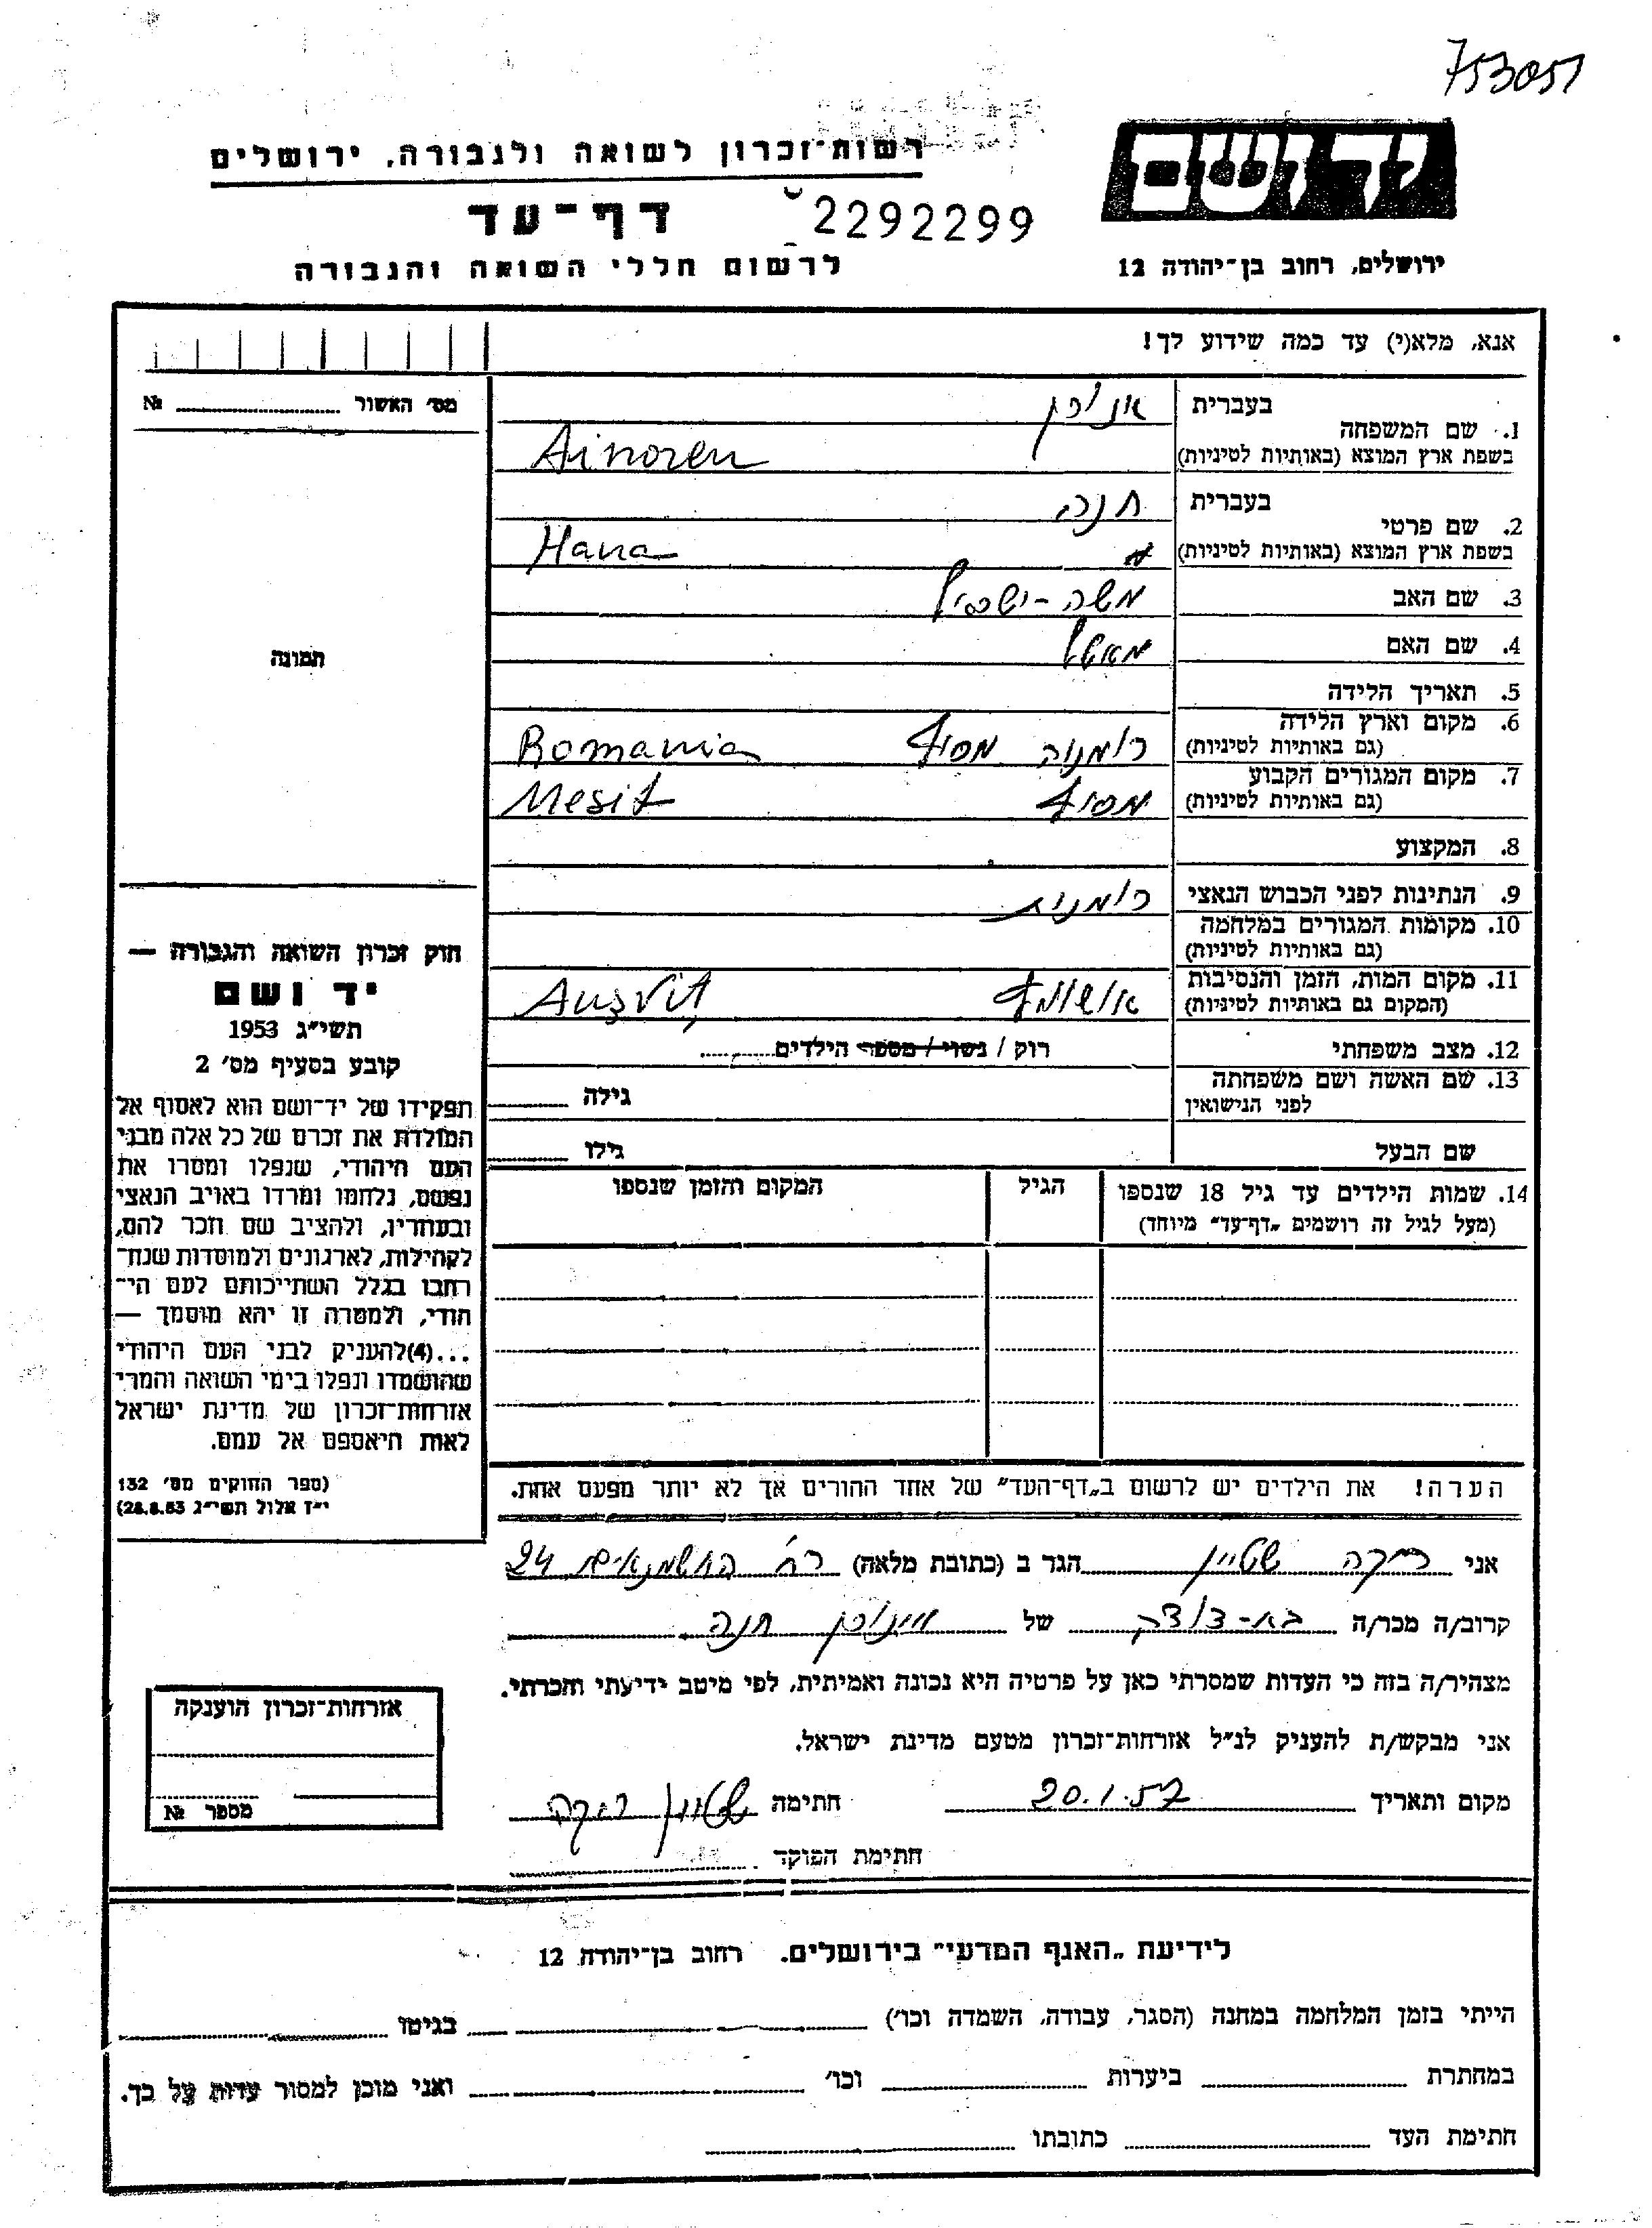 753051
יד ושם
ירושלים, רחוב בן־יהודה 12
רשות־זכרון לשואה ולגבורה, ירושלים
דף־עד
2292299
לרשום חללי השואה והגבורה
אנא, מלא(י) עד כמה שידוע לך!
1. שם המשפחה
בעברית
בשפת ארץ המוצא (באותיות לטיניות)
Ainoren
2. שם פרטי
בעברית חנה
בשפת ארץ המוצא (באותיות לטיניות) Hana
3. שם האב משה-
4. שם האם
5. תאריך הלידה
6. מקום וארץ הלידה
(גם באותיות לטיניות) רומניה מסיף Romania
7. מקום המגורים הקבוע
(גם באותיות לטיניות) מסיף Mesif
8. המקצוע
9. הנתינות לפני הכבוש הנאצי רומנית
10. מקומות המגורים במלחמה
(גם באותיות לטיניות)
11. מקום המות, הזמן והנסיבות
(המקום גם באותיות לטיניות) Aușviț
12. מצב משפחתי רוק / נשוי / מספר הילדים
13. שם האשה ושם משפחתה
לפני הנישואין גילה
שם הבעל גילו
14. שמות הילדים עד גיל 18 שנספו
(מעל לגיל זה רושמים „דף־עד" מיוחד)
הגיל
המקום והזמן שנספו
הערה! את הילדים יש לרשום ב„דף־העד" של אחד ההורים אך לא יותר מפעם אחת.
מס׳ האשור №
תמונה
חוק זכרון השואה והגבורה —
יד ושם
תשי״ג 1953
קובע בסעיף מס׳ 2
תפקידו של יד־ושם הוא לאסוף אל
המולדת את זכרם של כל אלה מבני
העם היהודי, שנפלו ומסרו את
נפשם, נלחמו ומרדו באויב הנאצי
ובעוזריו, ולהציב שם וזכר להם,
לקהילות, לארגונים ולמוסדות שנח־
רבו בגלל השתייכותם לעם הי־
הודי, ולמטרה זו יהא מוסמך —
...(4)להעניק לבני העם היהודי
שהושמדו ונפלו בימי השואה והמרי
אזרחות־זכרון של מדינת ישראל
לאות היאספם אל עמם.
(ספר החוקים מס׳ 132
י״ז אלול תשי״ג 28.8.53)
אני רבקה שטיין הגר ב (כתובת מלאה) רח׳ החשמונאים 24
קרוב/ה מכר/ה בת-דודה של חנה
מצהיר/ה בזה כי העדות שמסרתי כאן על פרטיה היא נכונה ואמיתית, לפי מיטב ידיעתי והכרתי.
אני מבקש/ת להעניק לנ״ל אזרחות־זכרון מטעם מדינת ישראל.
מקום ותאריך 20.1.57 חתימה שטיין רבקה
חתימת הפוקד
אזרחות־זכרון הוענקה
מספר №
לידיעת „האגף המדעי" בירושלים. רחוב בן־יהודה 12
הייתי בזמן המלחמה במחנה (הסגר, עבודה, השמדה וכו׳) בגיטו
במחתרת ביערות וכו׳ ואני מוכן למסור עדות על כך.
חתימת העד כתובתו